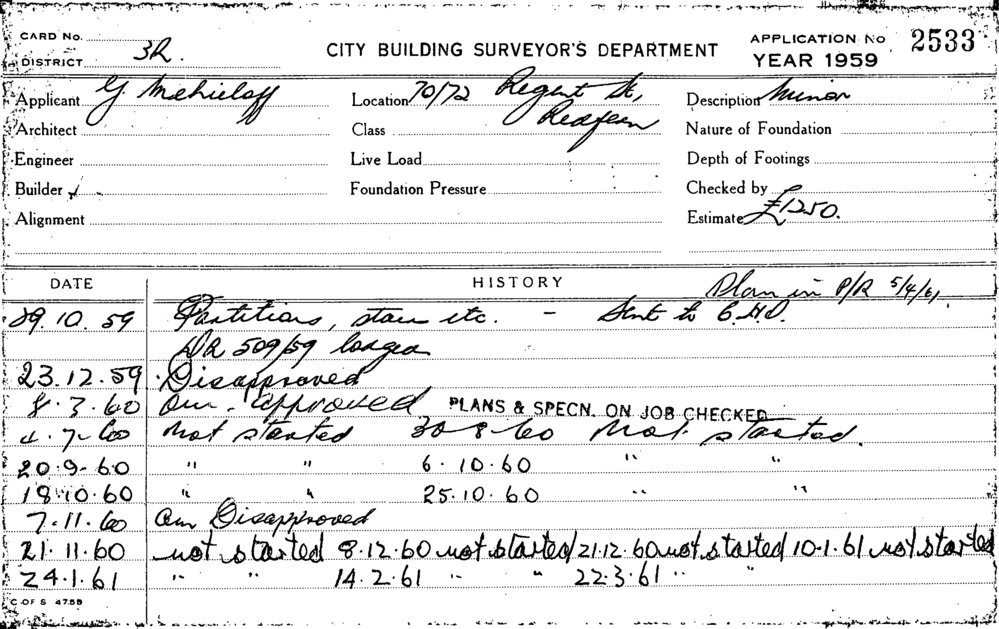 CARD No.
DISTRICT 3R.
CITY BUILDING SURVEYOR'S DEPARTMENT
APPLICATION No 2533
YEAR 1959
Applicant G Location 70/72 Regent St, Description Minor
Redfern
Architect Class Nature of Foundation
Engineer Live Load Depth of Footings
Builder Foundation Pressure Checked by
Alignment Estimate £1250.
DATE HISTORY Plan in P/R 5/4/61
29.10.59 Partitions, stairs etc. - Sent to C.H.O.
DR 509/59 lodged
23.12.59 Disapproved
8.3.60 Am. approved PLANS & SPECN. ON JOB CHECKED
4-7-60 Not started 30-8-60 Not started.
20.9-60 " " 6.10.60 " "
18.10.60 " " 25.10.60 " "
7.11.60 Am Disapproved
21.11.60 not started 8.12.60 not started 21.12.60 not started 10.1.61 not started
24.1.61 " " 14.2.61 " " 22.3.61 "
C OF S 47.59